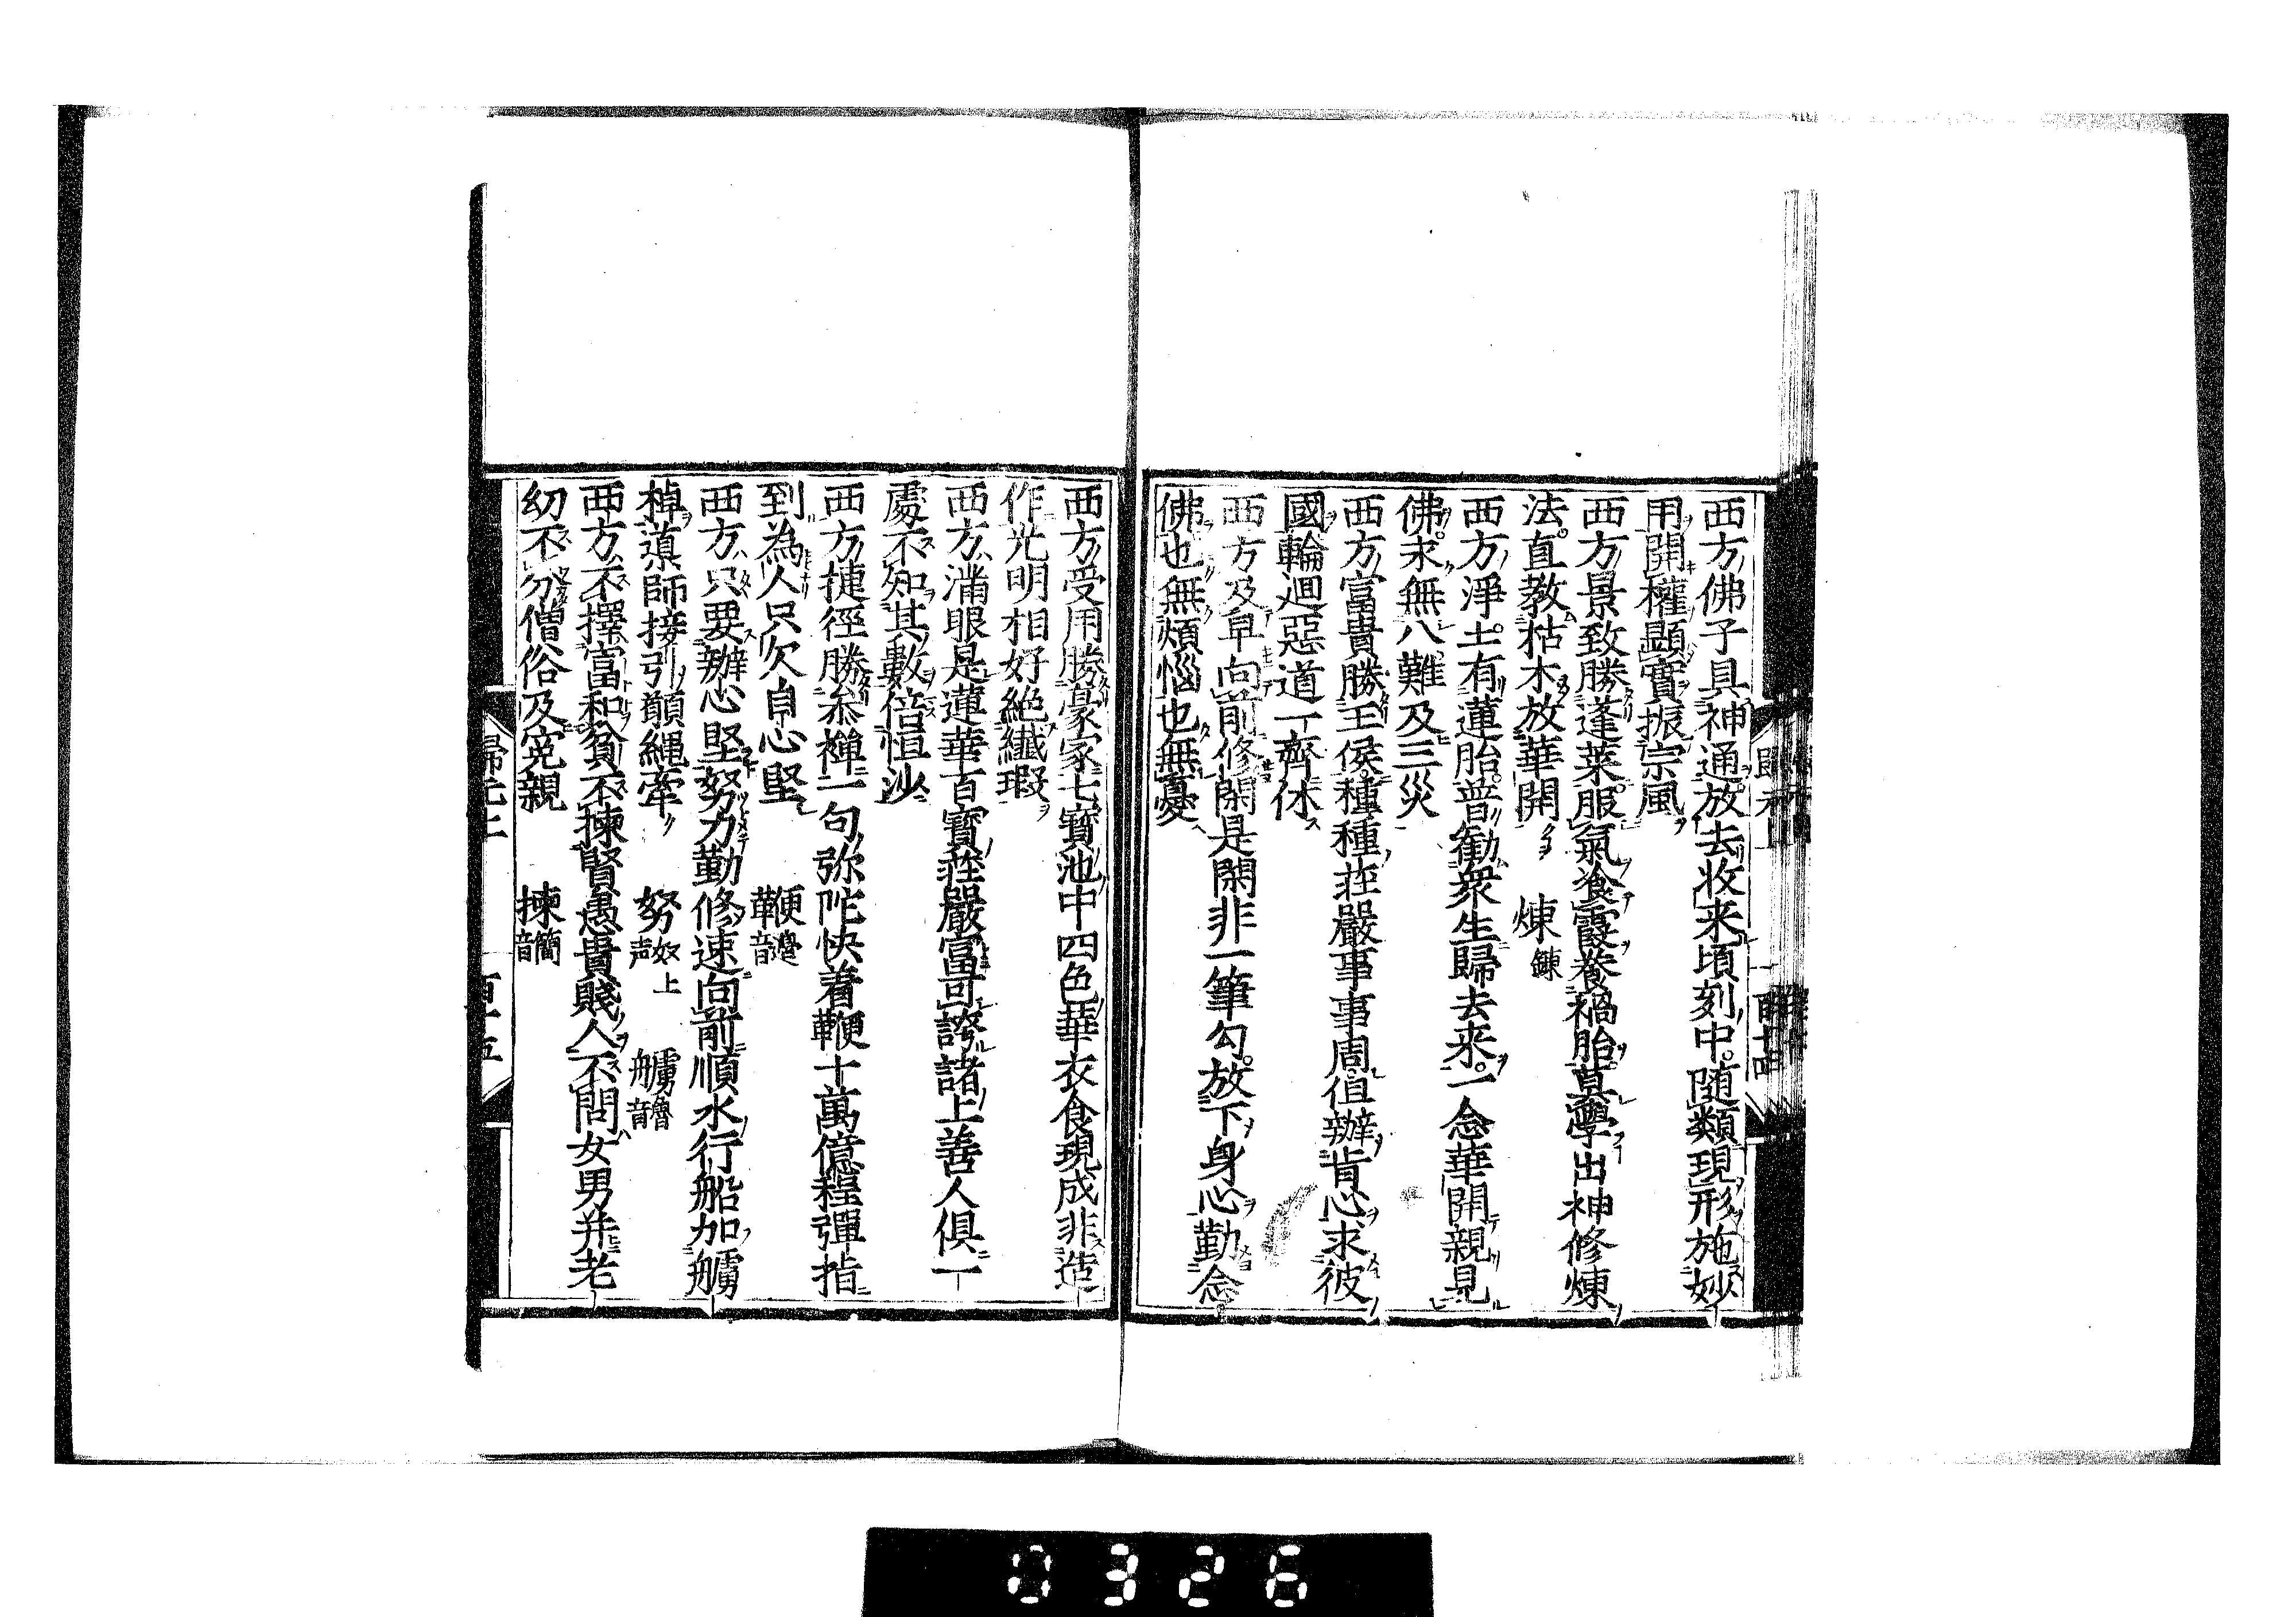 西方佛子具神通放去收来頃刻中随類現形施妙
用開權顯實振宗風
西方景致勝蓬莱服氣飡霞養禍胎莫學出神修煉
法直教枯木放華開　煉鍊
西方淨土有蓮胎普勸衆生歸去来一念華開親見
佛永無八難及三災
西方富貴勝王侯種種荘嚴事事周值辦肯心求彼
國輪迴惡道一齊休
西方及早向前修閑是閑非一筆勾放下身心勤念
佛也無煩惱也無憂
西方受用勝豪家七寶池中四色華衣食現成非造
作光明相好絶纖瑕
西方滿眼是蓮華百寶荘嚴富可誇諸上善人俱一
處不知其數倍恒沙
西方捷徑勝叅禅一句弥陀快着鞭十萬億程彈指
到為人只欠自心堅　鞭音邊
西方只要辦心堅努力勤修速向前順水行船加艣
棹導師接引顛繩牽　努奴上声　艣音魯
西方不擇富和貧不揀賢愚貴賤人不問女男并老
幼不分僧俗及寃親　揀音簡
歸元二　百十五
0326